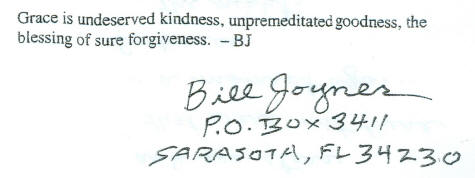 Grace is undeserved kindness, unpremeditated goodness, the
blessing of sure forgiveness. – BJ
Bill Joyner
P.O. BOX 3411
SARASOTA, FL 34230